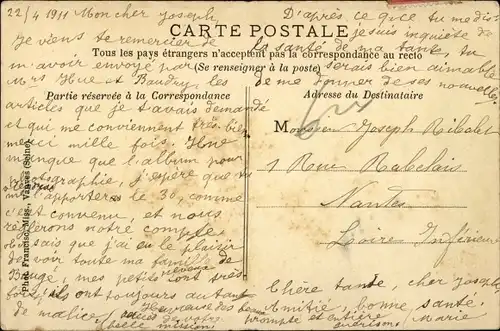 22/4 1911 Mon cher Joseph
Je viens te remercier de
m'avoir envoyé par
Mrs Hue et Baudry, les
articles que je t'avais demandé
et qui me conviennent très bien
merci mille fois. Il ne
manque que l'album pour
photographie, j'espère que tu
m'apporteras le 30, comme
c'est convenu, et nous
règlerons notre compte
Je sais que j'ai eu le plaisir
de voir toute ma famille de
Baugé, mes petits neveux sont très
ils ont toujours autant
de malice
belle mission
D'après ce que tu me dis
je suis inquiète de
la santé de ma tante, tu
serais bien aimable
de me donner de ses nouvelles
CARTE POSTALE
Tous les pays étrangers n'acceptent pas la correspondance au recto
(Se renseigner à la poste)
Partie réservée à la Correspondance
Adresse du Destinataire
Monsieur Joseph Ribalet
1 Rue Rabelais
Nantes
Loire Inférieure
Chère tante, cher Joseph
Amitié, bonne santé,
prompte et entière
guérison Marie
Phot. Francisc. Miss., Vanves (Seine)